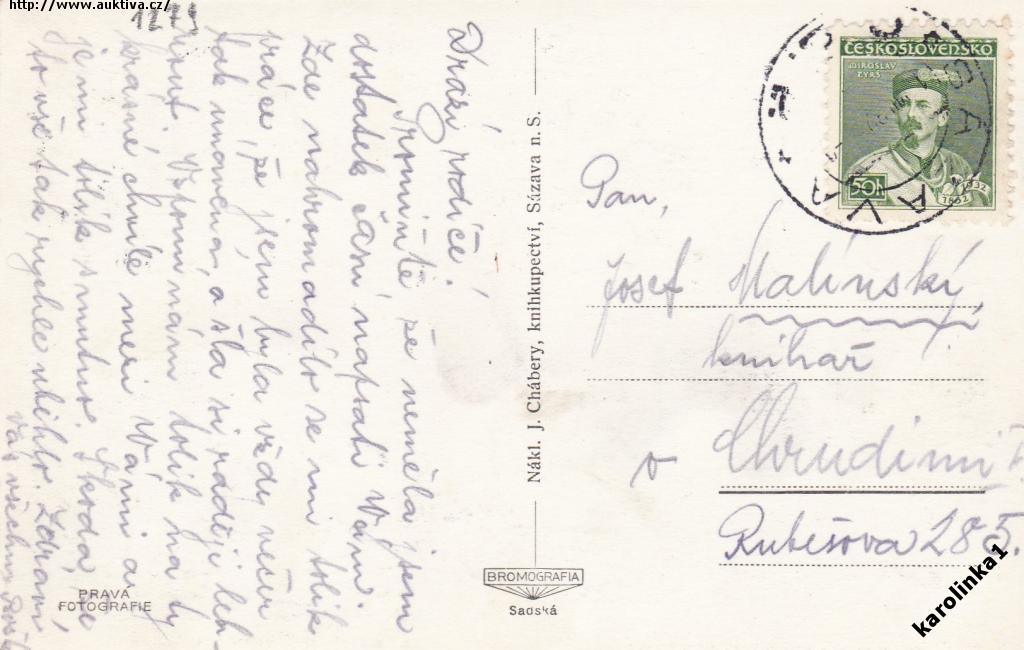 http://www.auktiva.cz/
Drazí rodiče!
Promiňte že neměla jsem
dostatek času napsati Vám.
Zde nahromadilo se mi tolik
práce, že jsem byla vždy večer
tak unavená, a šla si raději leh-
nout. Vzpomínám tolik na ty
krásné chvíle mezi Vámi a
je mi tolik smutno. Škoda, že
to vše tak rychle uběhlo. Zdraví
Vás všechny
PRAVÁ
FOTOGRAFIE
Nákl. J. Chábery, knihkupectví, Sázava n. S.
BROMOGRAFIA
Sadská
ČESKOSLOVENSKO
MIROSLAV
TYRŠ
50h
1832
1932
Pan,
Josef Malínský,
knihař
v Chrudimi
Rubešova 285.
karolinka1